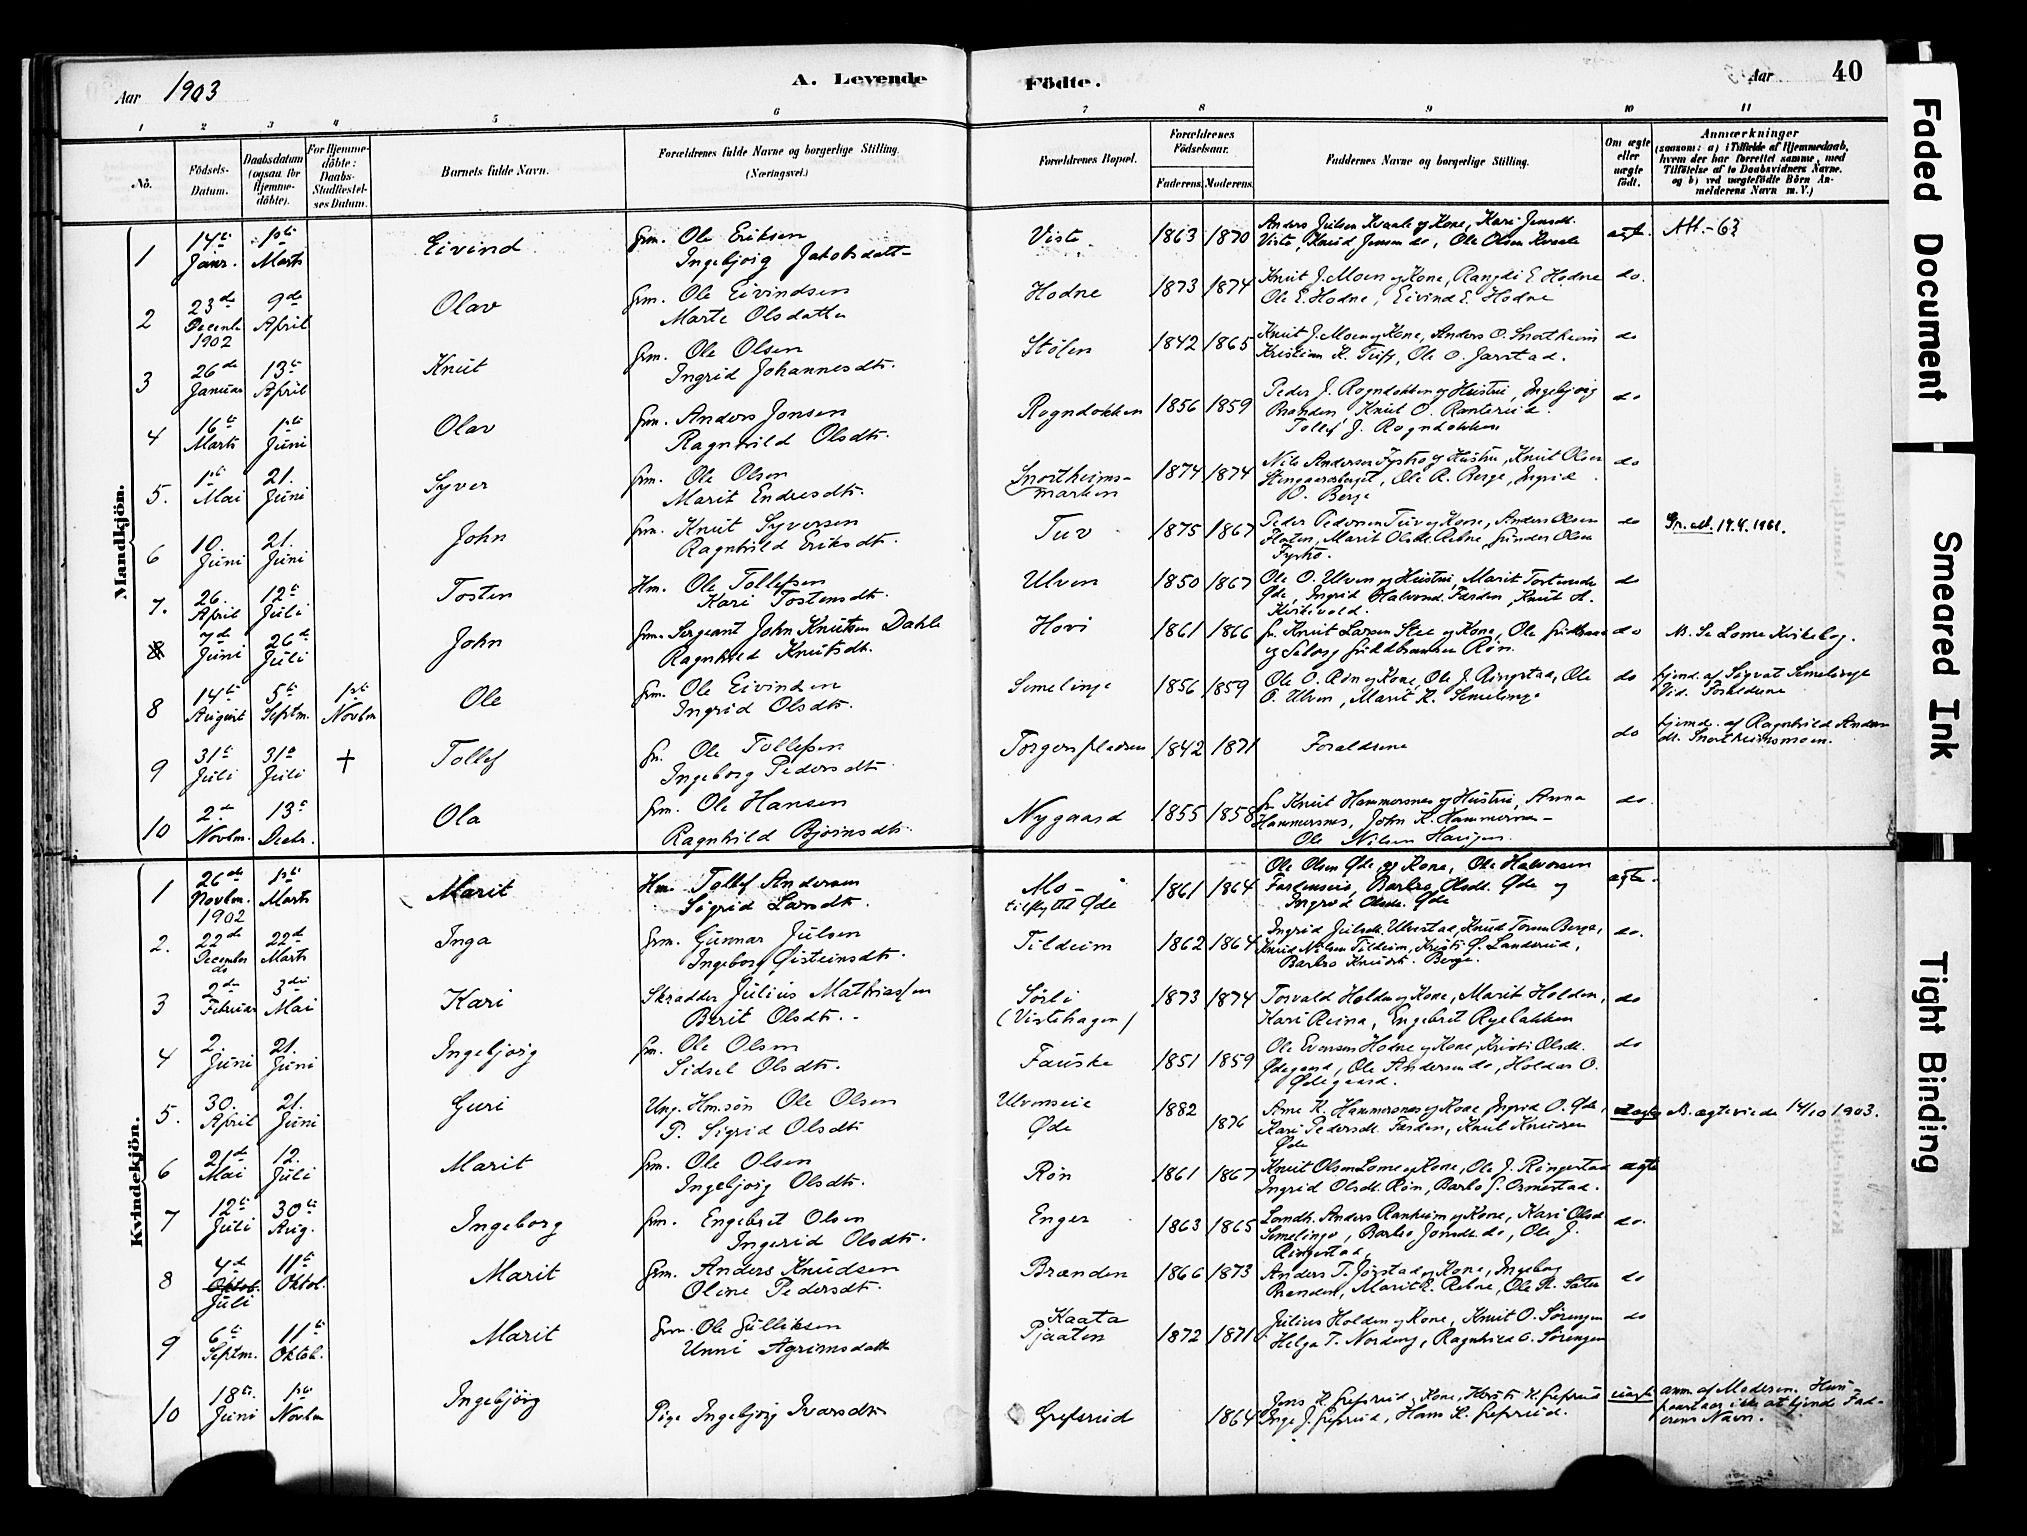 Aar 1903
A. Levende Födte.
Aar 40
1 2 3 4 5 6 7 8 9 10 11
No.
Födsels-
Datum.
Daabsdatum
(ogsaa for
Hjemme-
döbte).
For Hjemme-
döbte:
Daabs-
Stadfæstel-
ses Datum.
Barnets fulde Navn.
Forældrenes fulde Navne og borgerlige Stilling.
(Næringsvei.)
Forældrenes Bopæl.
Forældrenes
Födselsaar.
Faderens. Moderens.
Faddernes Navne og borgerlige Stilling.
Om ægte
eller
uægte
födt.
Anmærkninger
(saasom: a) i Tilfælde af Hjemmedaab,
hvem der har forrettet samme, med
Tilföielse af to Daabsvidners Navne.
og b) ved uægtefödte Börn An-
melderens Navn m. V.)
Mandkjön.
1 14de Janr. 1ste Marts Eivind Grm. Ole Eriksen
Ingebjørg Jakobsdatt-
Viste 1863 1870 Anders Juilsen Kvaale og Kone, Kari Jensdt.
Viste, Knud Jensen do, Ole Olsen Kvaale
ægt. Att.-63
2 23de Decemb 1902 9de April Olav Grm. Ole Eivindsen
Marte Olsdatter
Hodne 1873 1874 Knut J. Moen og Kone, Rangdi E. Hodne
Ole E. Hodne, Eivind E. Hodne
do.
3 26de Januar 13de April Knut Grm. Ole Olsen
Ingrid Johannesdtr.
Stølen 1842 1865 Knut J. Moen og Kone, Anders O. Snortheim
Kristian K. Tuff, Ole O. Jarstad.
do
4 16de Marts 1ste Juni Olav Grm. Anders Jonsen
Ragnhild Olsdtr.
Rogndokken 1856 1859 Peder J. Rogndokken og Hustru, Ingebjørg
Brænden, Knut O. Ranterud.
Tollef J. Rogndokken
do
5. 1ste Mai 21. Juni Syver Grm. Ole Olsen
Marit Endresdtr.
Snortheims-
marken
1874 1874 Nils Andersen Fystro og Hustru, Knut Olsen
Stengaardsberget, Ole A. Berge, Ingrid
O. Berge
do
6 10. Juni 21. Juni John Grm. Knut Syversen
Ragnhild Eriksdtr.
Tuv 1875 1867 Peder Pedersen Tuv og Kone, Anders Olsen
Floten, Marit Olsdt. Rebne, Gunder Olsen
Fystro.
do 19.4.1961.
7. 26. April 12te Juli Tosten Hm. Ole Tollefsen
Kari Tostensdtr.
Ulven 1850 1867 Ole O. Ulven og Hustru, Marit Tostensdt
Øde, Ingrid Halvorsd. Færden, Knut A.
Kvitevold.
do
7de Juni 26de Juli John Grm. Sergeant John Knutsen Dahle
Ragnhild Knutsdtr.
Hovi 1861 1866 Gr. Knut Larsen Stee og Kone, Ole
Røn.
do M. Se Lome Kirkebog.
8 14de August 5te Septm. 1ste Novbm Ole Grm. Ole Eivindsen
Ingrid Olsdtr.
Semelinge 1856 1859 Ole O. Røn og Kone, Ole J. Ringstad, Ole
O. Ulven, Marit K. Semelinge
do hjemd. af Sigvat Semelinge
Vid. Forældrene
9 31te Juli 31te Juli + Tollef Gr. Ole Tollefsen
Ingeborg Pedersdtr.
1842 1871 Forældrene
do hjemd. af Ragnhild Anders
dt. Snortheimsmoen.
10 2de Novbm. 13de Decbr. Ola Grm. Ole Hansen
Ragnhild Bjørnsdtr.
Nygaard 1855 1858 Gr. Knut Hammersnes og Hustru, Anna
Hammersnes, John K. Hammersnes-
Ole Nilsen
do.
Kvindekjön.
1 26de Novbm. 1902 1ste Marts Marit Hm. Tollef Andersen
Sigrid Larsdtr.
Mo-
tilflyttet Øde
1861 1864 Ole Olsen Øde og Kone, Ole Halvorsen
Færdenseie, Barbro Olsdt. Øde og
Ingrid Olsdt. Øde
ægte.
2. 22de December do 22de Marts Inga Grm. Gunnar Juilsen
Ingeborg Østeinsdtr.
Tildeim 1862 1864 Ingrid Juilsdt. Ulvestad, Knud Torsen Berge,
Knud Nilsen Tildeim, Kristi Ø. Landerud,
Barbro Knudsdt. Berge.
do.
3 2de Februar 3die Mai Kari Skrædder Julius Mathiassen
Berit Olsdtr.
Sørli
(Vistehagen)
1873 1874 Torvald Holden og Kone, Marit Holden,
Kari Reina, Engebret Ryebakken
do
4 2. Juni 21. Juni Ingebjørg Grm. Ole Olsen
Sidsel Olsdtr.
Fauske 1851 1859 Ole Evensen Hodne og Kone, Kristi Olsdt.
Ødegaard, Ole Andersen do, Holdar O.
Ødegaard.
do
5. 30. April 21. Juni Guri Ung. Hmsøn Ole Olsen
P. Sigrid Olsdtr.
Ulvenseie
Øde
1882 1876 Arne K. Hammersnes og Kone, Ingrid O. Øde,
Kari Pedersdt. Færden, Knut Knudsen
Øde
uægte M. ægteviede 14/10 1903.
6 21de Mai 12. Juli Marit Grm. Ole Olsen
Ingebjørg Olsdtr.
Røn 1861 1867 Knut Olsen Lome og Kone, Ole J. Ringestad
Ingrid Olsdt. Røn, Barbo S. Ormestad.
ægte
7 12te Juli 30te Aug. Ingeborg Grm. Engebret Olsen
Ingerid Olsdtr.
Enger 1863 1865 Landh. Anders Ranheim og Kone, Kari Olsd
Semelinge, Barbro Jonsdt. do, Ole J.
Ringestad,
do.
8 4de Oktob. Juli 11te Oktob. Marit Grm. Anders Knudsen
Oline Pedersdtr.
Brænden 1866 1873 Anders T. Jørstad og Kone, Ingeborg
Brænden, Marit K. Rebne, Ole K. Sæter
do
9 6te Septm. 11te Oktob. Marit Grm. Ole Gulliksen
Unni Agrimsdatt
Kaata
Pjaaten
1872 1871 Julius Holden og Kone, Knut O. Sørengen
Helga T. Nordeng, Ragnhild O. Sørengen
do
10 18de Juni 1ste Novbm Ingebjørg Pige Ingebjørg Ivarsdtr
Grefsrud 1864 Jens K. Grefsrud, Kone, Kersti K. Grefsrud
Inge J. Grefsrud, Hans K. Grefsrud.
uægte anm. af Moderen. Hun
paastaar ikke at kjende Fad-
erens Navn.
Faded Document
Smeared Ink
Tight Binding